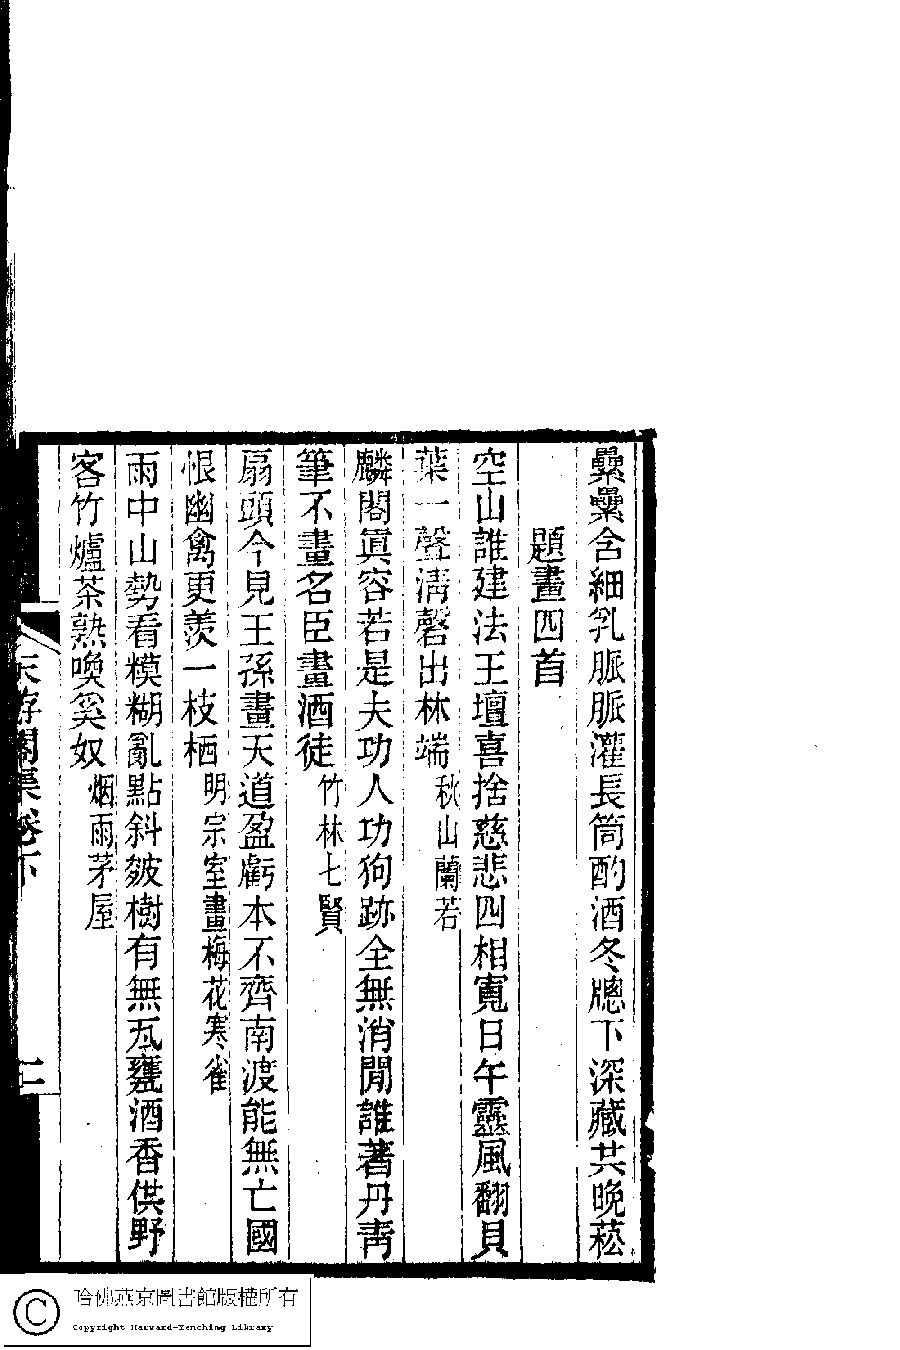 纍纍含細乳脈脈灌長筒酌酒冬牕下深藏共晚菘
題畫四首
空山誰建法王壇喜捨慈悲四相寬日午靈風翻貝
葉一聲清磬出林端秋山蘭若
麟閣眞容若是夫功人功狗跡全無消閒誰著丹靑
筆不畫名臣畫酒徒竹林七賢
扇頭今見王孫畫天道盈虧本不齊南渡能無亡國
恨幽禽更羨一枝栖明宗室畫梅花寒雀
雨中山勢看糢糊亂點斜皴樹有無瓦甕酒香供野
客竹爐茶熟喚奚奴烟雨茅屋
天游閣集卷下
哈佛燕京圖書館版權所有
Copyright Harvard-Yenching Library